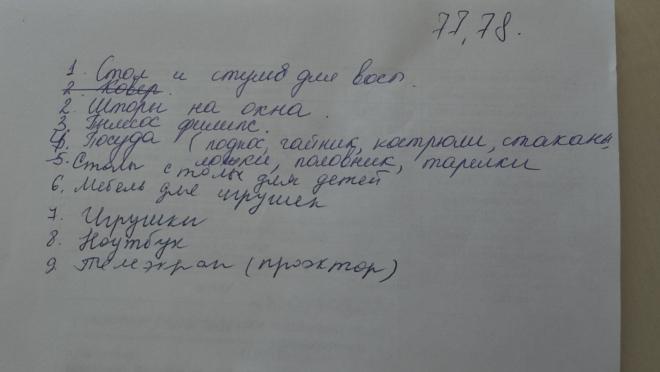 77, 78.
1. Стол и стулб для восп.
2. Ковер.
2. Шторы на окна.
3. Пылесос филипс.
4. Посуда (поднос, чайник, кострюли, стаканы,
ложки, половник, тарелки
5. Столы столы для детей
6. Мебель для игрушек
7. Игрушки
8. Ноутбук
9. Телеэкран (проэктор)